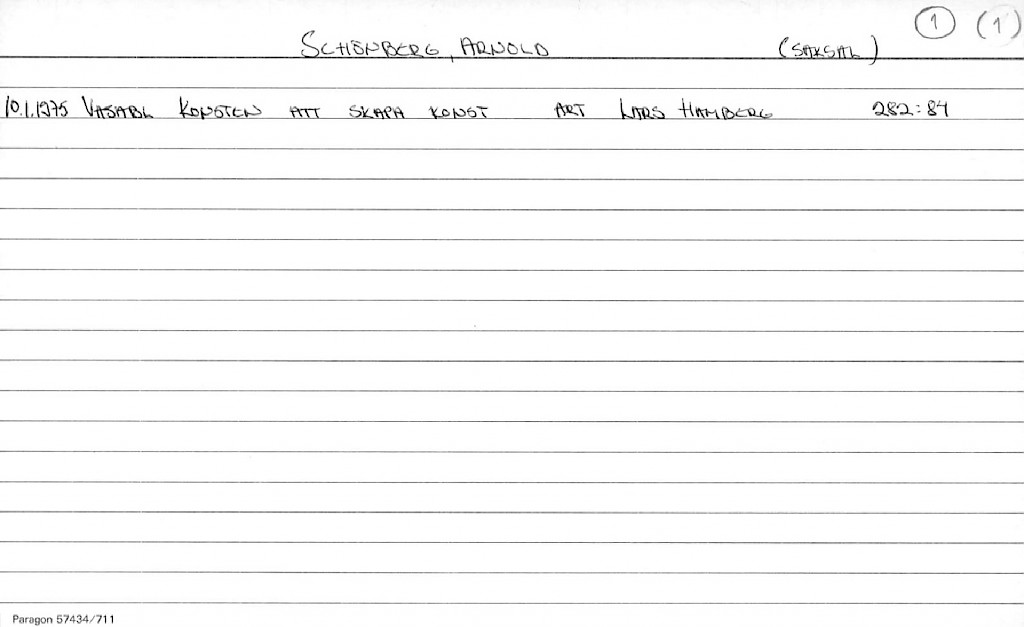 1 (1)
SCHÖNBERG, ARNOLD (SAKSAL)
10.1.1975 VASABL KONSTEN ATT SKAPA KONST ART LARS HAMBERG 282:84
Paragon 57434/711